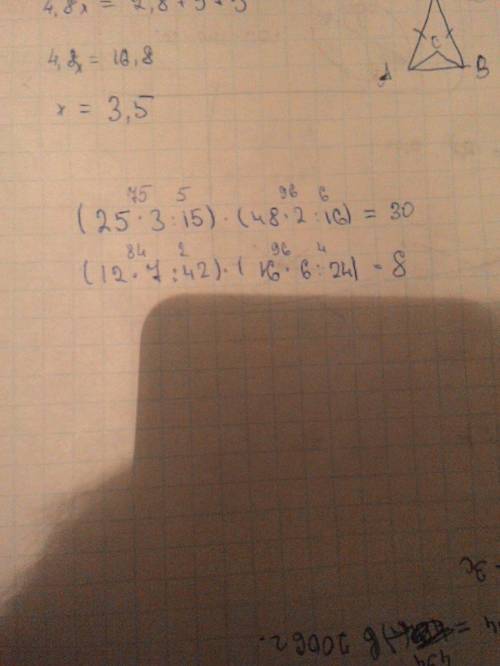 4,8x = 2,8+9+5
4,8x = 16,8
x = 3,5
A C B
75 5 96 6
(25·3:15)·(48·2:16) = 30
84 2 96 4
(12·7:42)·(16·6:24) = 8
2006г.